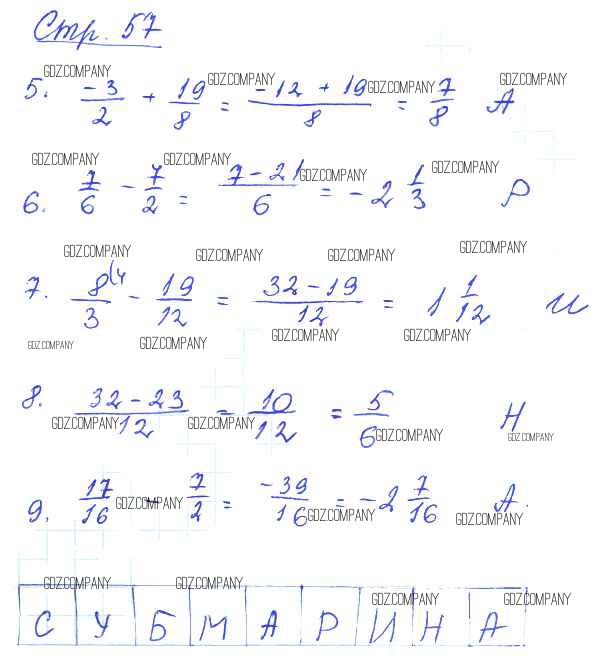 Стр. 57
GDZ.COMPANY GDZ.COMPANY GDZ.COMPANY GDZ.COMPANY
5. -3/2 + 19/8 = -12 + 19/8 = 7/8 А
GDZ.COMPANY GDZ.COMPANY GDZ.COMPANY GDZ.COMPANY
6. 7/6 - 7/2 = 7 - 21/6 = -2 1/3 Р
GDZ.COMPANY GDZ.COMPANY GDZ.COMPANY GDZ.COMPANY
7. 8(4/3 - 19/12 = 32 - 19/12 = 1 1/12 И
GDZ.COMPANY GDZ.COMPANY GDZ.COMPANY GDZ.COMPANY
8. 32 - 23/12 = 10/12 = 5/6 Н
GDZ.COMPANY GDZ.COMPANY GDZ.COMPANY GDZ.COMPANY
9. 17/16 - 7/2 = -39/16 = -2 7/16 А.
GDZ.COMPANY GDZ.COMPANY GDZ.COMPANY
GDZ.COMPANY GDZ.COMPANY GDZ.COMPANY GDZ.COMPANY
С У Б М А Р И Н А